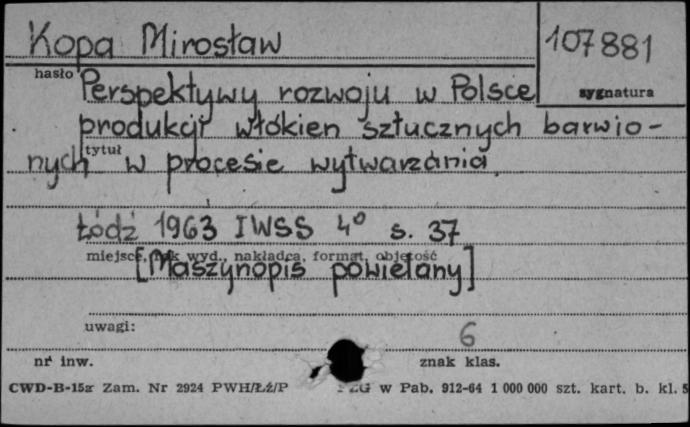 Kopa Mirosław
107881
hasło
sygnatura
Perspektywy rozwoju w Polsce
produkcji włókien sztucznych barwio-
tytuł
nych w procesie wytwarzania
Łódź 1963 IWSS 4° s. 37
miejsce, rok wyd., nakładca, format, objętość
[Maszynopis powielany]
uwagi:
6
nr inw.
znak klas.
CWD-B-15a Zam. Nr 2924 PWH/Łż/P w Pab. 912-64 1 000 000 szt. kart. b. kl. 5